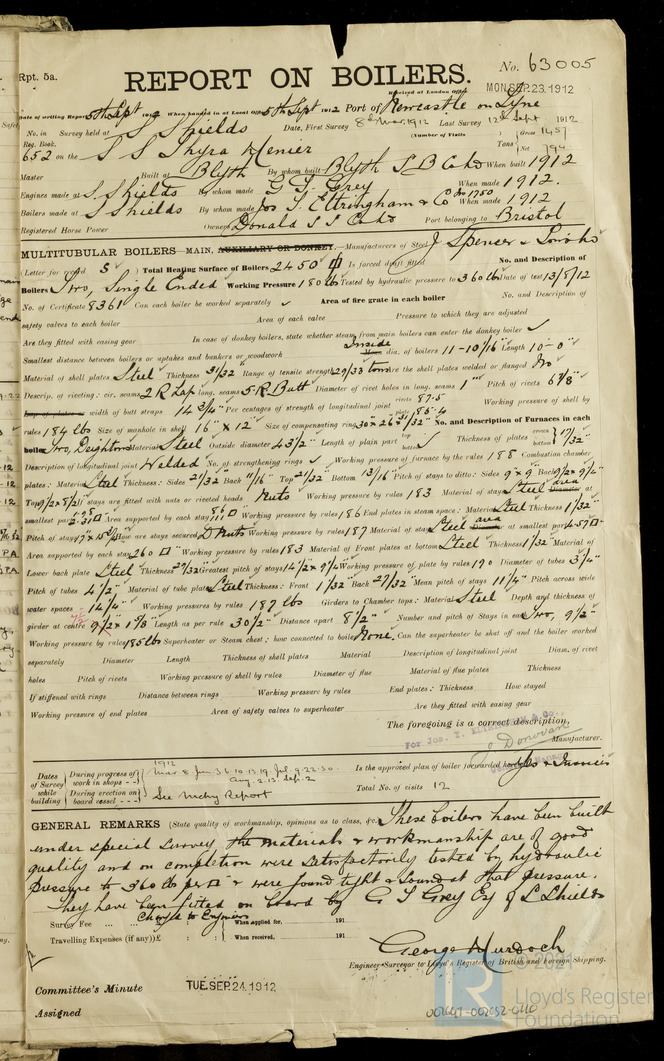 Rpt. 5a.
No. 63005
REPORT ON BOILERS.
Received at London Office MON. SEP. 23. 1912
Date of writing Report 5th Sept 1912 When handed in at Local Office 5th Sept 1912 Port of Newcastle on Tyne
No. in Survey held at S Shields Date, First Survey 8th Mar 1912 Last Survey 12th Sept 1912
Reg. Book. (Number of Visits Gross 1457
652 on the S S Thyra Menier Tons Net 794
Master Built at Blyth By whom built Blyth S B Co Ld When built 1912
Engines made at S. Shields By whom made G. T. Grey When made 1912.
Boilers made at S Shields By whom made Jos T. Eltringham & Co No 1750 When made 1912
Registered Horse Power Owners Donald S S Co Ld Port belonging to Bristol
MULTITUBULAR BOILERS MAIN, AUXILIARY OR DONKEY.—Manufacturers of Steel J Spencer & Sons Ld
(Letter for record S) Total Heating Surface of Boilers 2450 Is forced draft fitted No. and Description of
Boilers Two, Single Ended Working Pressure 180 lb Tested by hydraulic pressure to 360 lb Date of test 13/8/12
No. of Certificate 8361 Can each boiler be worked separately ✓ Area of fire grate in each boiler No. and Description of
safety valves to each boiler Area of each valve Pressure to which they are adjusted
Are they fitted with easing gear In case of donkey boilers, state whether steam from main boilers can enter the donkey boiler ✓
Smallest distance between boilers or uptakes and bunkers or woodwork Inside dia. of boilers 11-10 1/16" Length 10-0"
Material of shell plates Steel Thickness 31/32 Range of tensile strength 29/33 tons Are the shell plates welded or flanged No
Descrip. of riveting: cir. seams 2 R Lap long. seams 5 R Butt Diameter of rivet holes in long. seams 1" Pitch of rivets 6 7/8"
width of butt straps 14 3/4" Per centages of strength of longitudinal joint rivets 87.5 plate 85.4 Working pressure of shell by
rules 184 lbs Size of manhole in shell 16" x 12" Size of compensating ring 30 x 26 x 31/32" No. and Description of Furnaces in each
boiler Two, Deighton Material Steel Outside diameter 43 1/2" Length of plain part top bottom ✓ Thickness of plates crown bottom 17/32"
Description of longitudinal joint Welded No. of strengthening rings ✓ Working pressure of furnace by the rules 188 Combustion chamber
plates: Material Steel Thickness: Sides 21/32 Back 11/16" Top 21/32 Bottom 13/16" Pitch of stays to ditto: Sides 9" x 9" Back 9 1/2 x 9 1/2"
Top 9 1/2 x 8 1/2 If stays are fitted with nuts or riveted heads Nuts Working pressure by rules 183 Material of stays Steel area Diameter at
smallest part Area supported by each stay Working pressure by rules 186 End plates in steam space: Material Steel Thickness 1 1/32"
Pitch of stays How are stays secured D Nuts Working pressure by rules 187 Material of stays Steel area Diameter at smallest part 4.57
Area supported by each stay 260 Working pressure by rules 183 Material of Front plates at bottom Steel Thickness 1 1/32" Material of
Lower back plate Steel Thickness 27/32" Greatest pitch of stays 14 1/2 x 9 1/4 Working pressure of plate by rules 190 Diameter of tubes 3 1/4"
Pitch of tubes 4 1/2" Material of tube plates Steel Thickness: Front 1 1/32 Back 27/32" Mean pitch of stays 11 1/4" Pitch across wide
water spaces 14 1/4" Working pressures by rules 187 lbs Girders to Chamber tops: Material Steel Depth and thickness of
girder at centre 9 1/2 x 1 7/8" Length as per rule 30 1/2" Distance apart 8 1/2" Number and pitch of Stays in each Two, 9 1/2"
Working pressure by rules 185 lb Superheater or Steam chest; how connected to boiler None. Can the superheater be shut off and the boiler worked
separately Diameter Length Thickness of shell plates Material Description of longitudinal joint Diam. of rivet
holes Pitch of rivets Working pressure of shell by rules Diameter of flue Material of flue plates Thickness
If stiffened with rings Distance between rings Working pressure by rules End plates: Thickness How stayed
Working pressure of end plates Area of safety valves to superheater Are they fitted with easing gear
The foregoing is a correct description,
For Jos. T. Eltringham & Co.,
Donovan
Manufacturer.
Dates of Survey while building During progress of work in shops 1912 Mar 8 Jun 3.6.10.13.19. Jul. 9.22.30. Aug. 2.13. Sep. 2 Is the approved plan of boiler forwarded herewith
During erection on board vessel See Mchy Report Total No. of visits 12
GENERAL REMARKS (State quality of workmanship, opinions as to class, &c. These boilers have been built
under special survey the materials & workmanship are of good
quality and on completion were satisfactorily tested by hydraulic
pressure to 360 lb per □" & were found tight & sound at that pressure.
They have been fitted on board by G T Grey Esq of S. Shields
Survey Fee Charged to Engines When applied for, 191
Travelling Expenses (if any) £ When received, 191
George Murdoch
Engineer Surveyor to Lloyd's Register of British and Foreign Shipping.
Committee's Minute TUE. SEP. 24. 1912
Assigned
© 2021
Lloyd's Register
Foundation